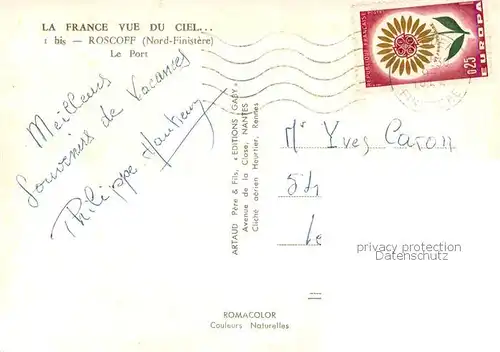 LA FRANCE VUE DU CIEL...
1 bis — ROSCOFF (Nord-Finistère)
Le Port
Meilleurs
Souvenirs de Vacances
Philippe
ARTAUD Père & Fils, « EDITIONS GABY »
Avenue de la Close, NANTES
Cliché aérien Heurtier, Rennes
REPUBLIQUE FRANÇAISE
0,25
EUROPA
Mr Yves Caron
privacy protection
Datenschutz
ROMACOLOR
Couleurs Naturelles